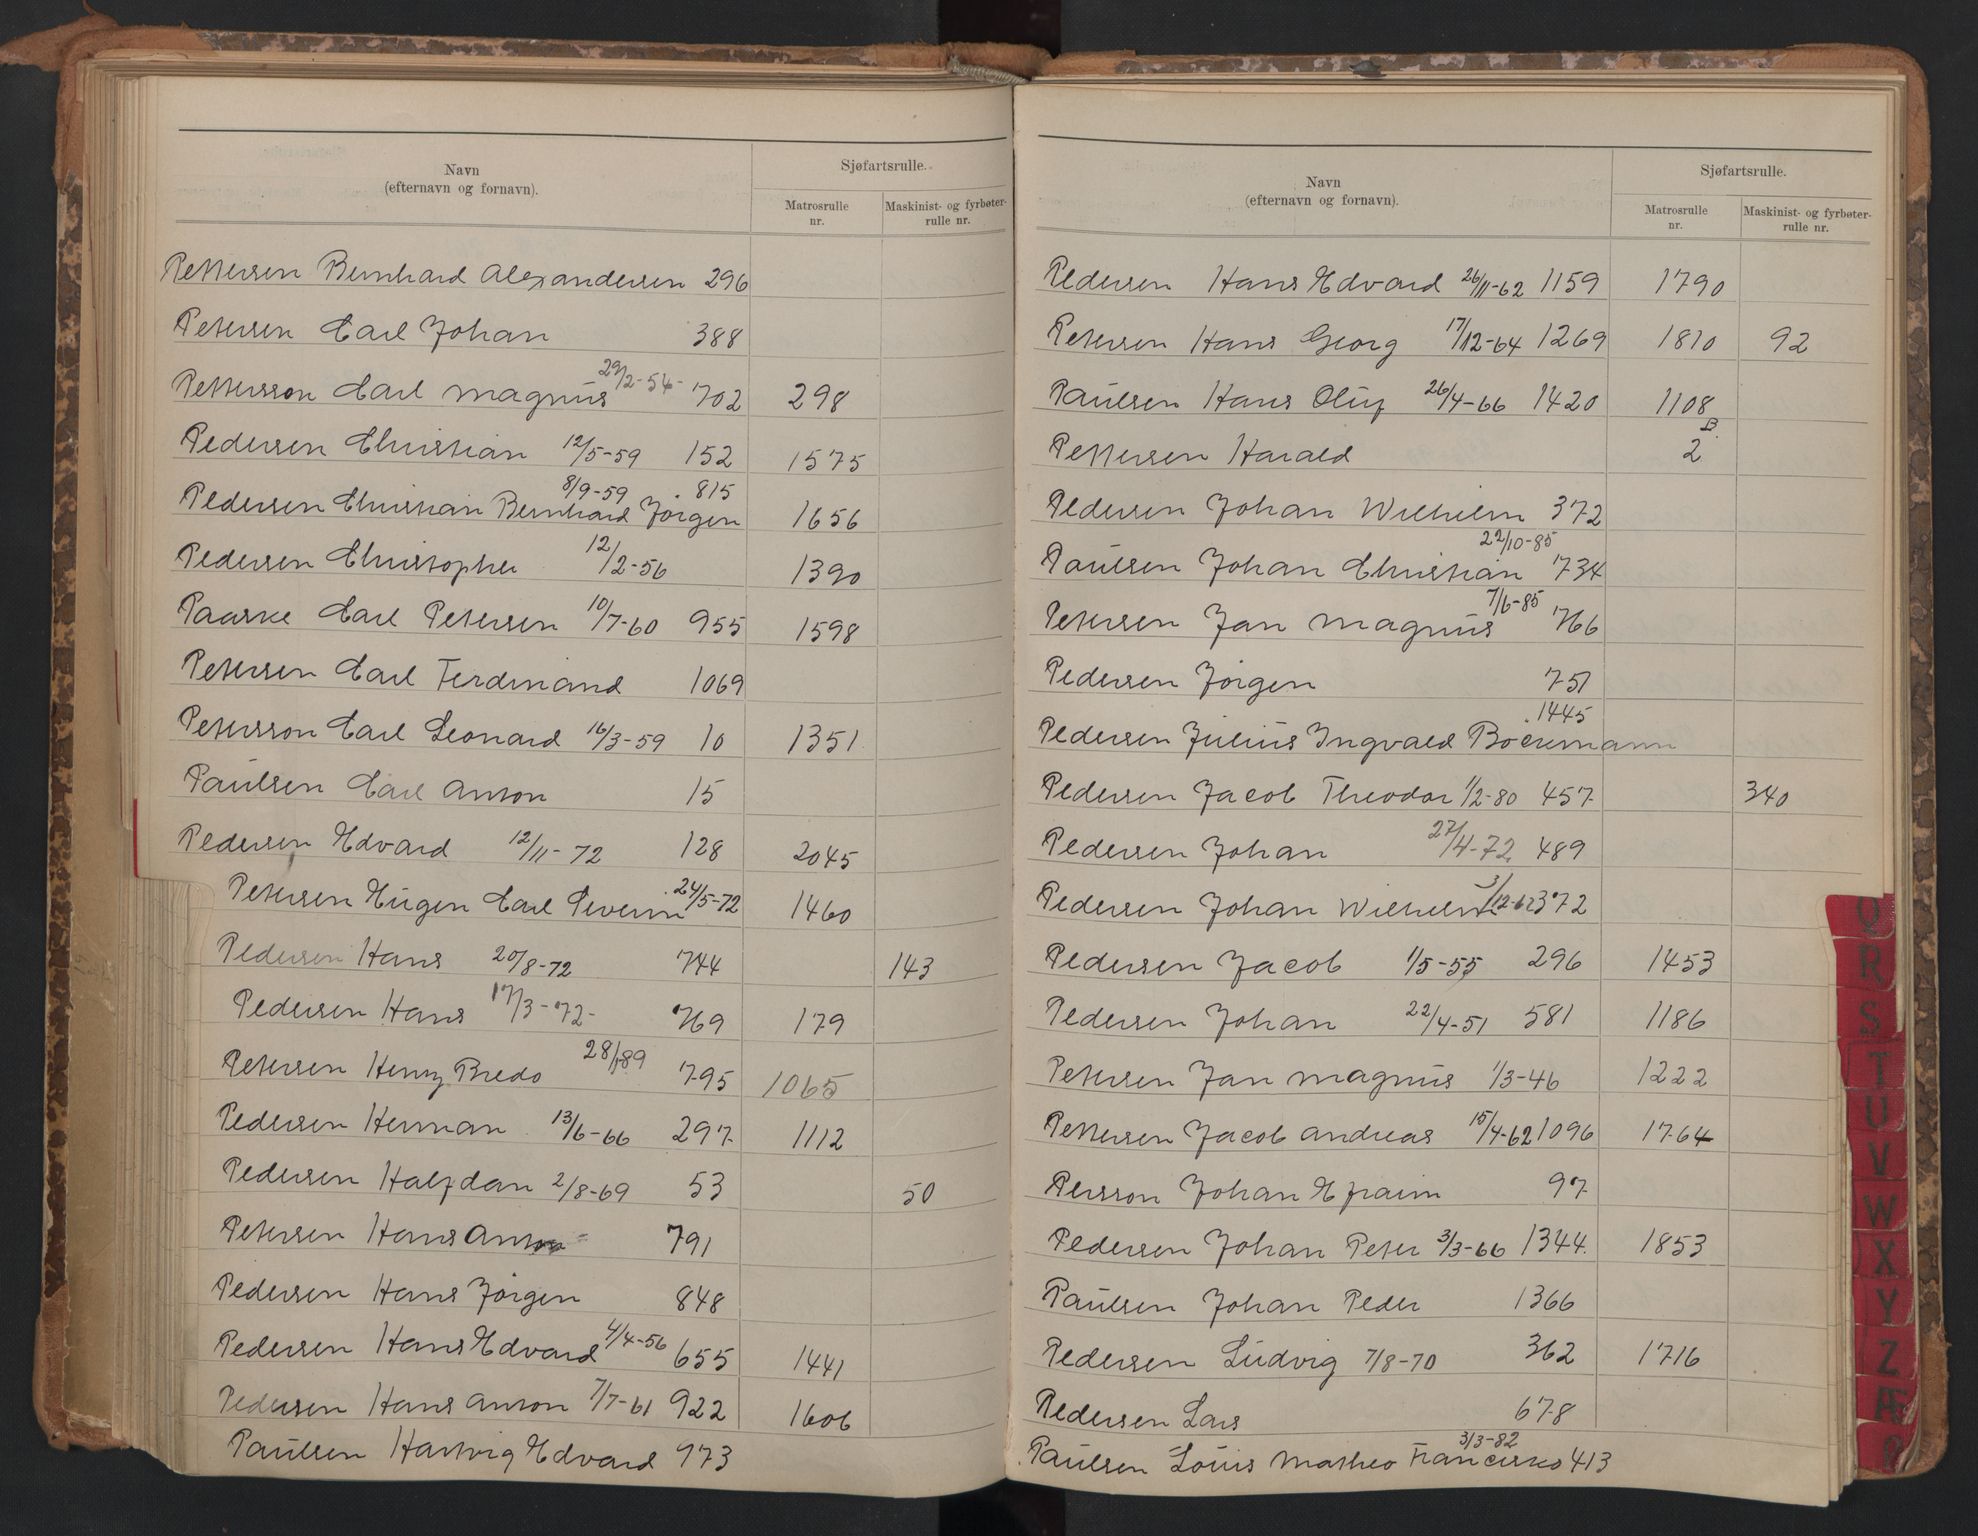 Navn
(efternavn og fornavn).
Sjøfartsrulle.
Matrosrulle nr.
Maskinist- og fyrbøter-rulle nr.
Pettersen Bernhard Alexandersen 296
Petersen Carl Johan 388
Pettersson Carl Magnus 29/2-54- 702 298
Pedersen Christian 12/5-59 152 1575
Pedersen Christian Bernhard Jörgen 8/9-59 815 1656
Pedersen Christopher 12/2-56 1390
Paaske Carl Petersen 10/7-60 955 1598
Petersen Carl Ferdinand 1069
Petersson Carl Leonard 16/3-59 10 1351
Paulsen Carl Anton 15
Pedersen Edvard 12/11-72 128 2045
Petersen Eugen Carl Severin 24/5-72 1460
Pedersen Hans 20/8-72 744 143
Pedersen Hans 17/3-72- 769 179
Petersen Henry Bredo 28/1 89 795 1065
Pedersen Herman 13/6-66 297 1112
Pedersen Halfdan 2/8-69 53 50
Petersen Hans Anton 791
Pedersen Hans Jörgen 848
Pedersen Hans Edvard 4/4-56 655 1441
Pedersen Hans Anton 7/7-61 922 1606
Paulsen Hartvig Edvard 973
Navn
(efternavn og fornavn).
Sjøfartsrulle.
Matrosrulle nr.
Maskinist- og fyrbøter-rulle nr.
Pedersen Hans Edvard 26/11-62 1159 1790
Petersen Hans Georg 17/12-64 1269 1810 92
Paulsen Hans Oluf 26/4-66 1420 1108
Pettersen Harald B. 2
Pedersen Johan Wilhelm 372
Paulsen Johan Christian 22/10-85 734
Petersen Jan Magnus 7/6-85 766
Pedersen Jörgen 751
Pedersen Julius Ingvald Bockmann 1445
Pedersen Jacob Theodor 1/2-80 457 340
Pedersen Johan 27/4-72 489
Pedersen Johan Wilhelm 3/12-62 372
Pedersen Jacob 1/5-55 296 1453
Pedersen Johan 22/4-51 581 1186
Petersen Jan Magnus 1/3-46 1222
Pettersen Jacob Andreas 15/4-62 1096 1764
Persson Johan Efraim 97
Pedersen Johan Peter 3/3-66 1344 1853
Paulsen Johan Peder 1366
Pedersen Ludvig 7/8-70 362 1716
Pedersen Lars 678
Paulsen Louis Matheo Francisko 3/3-82 413
Q
R
S
T
U
V
W
X
Y
Z
Æ